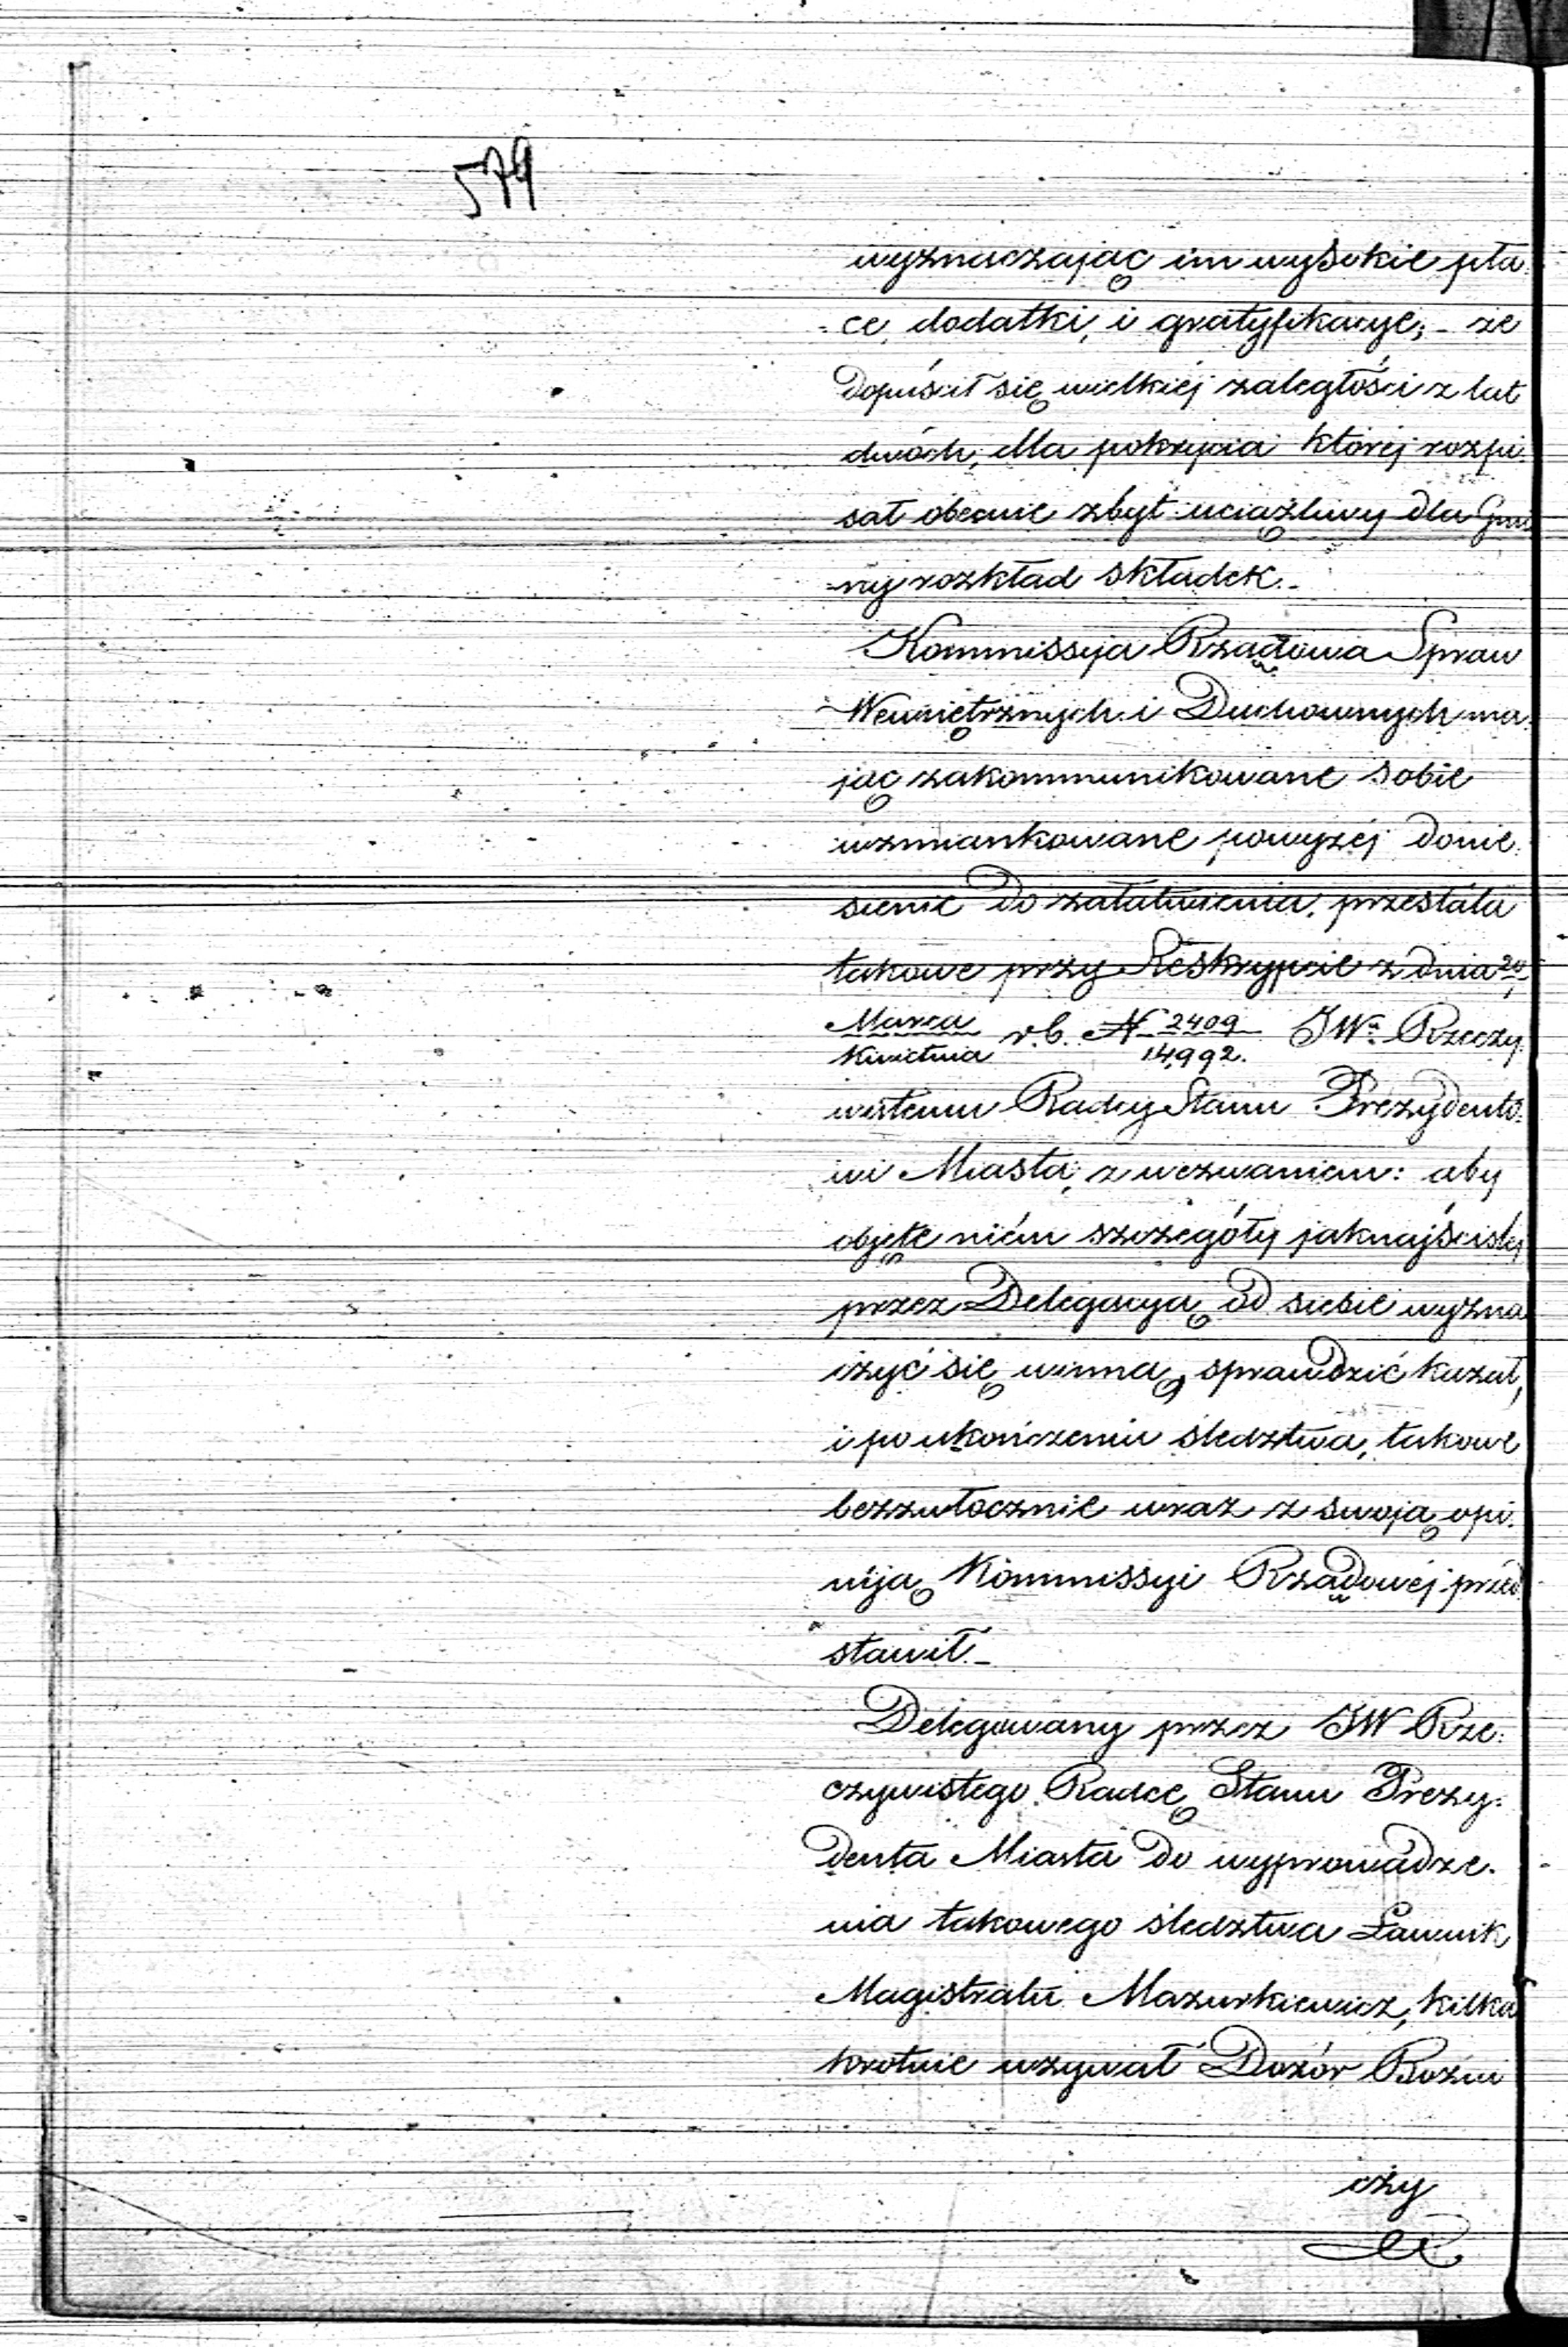 579
wyznaczając im wysokie pła:
:ce, dodatki, i gratyfikacye; - że
dopuścił się wielkiéj zaległości z lat
dwóch, dla pokrycia któréj rozpi:
sał obecnie zbyt uciążliwy dla Gmi
:ny rozkład składek._
Kommissyja Rządowa Spraw
Wewnętrznych i Duchownych ma:
jąc zakommunikowane sobie
wzmiankowane powyżéj donie:
sienie do załatwienia, przesłała
takowe przy Reskrypcie z dnia 20/1
Marca/Kwietnia r.b. N 2409/14992. JWu Rzeczy:
wistemu Radcy Stanu Prezydento:
wi Miasta, z wezwaniem: aby
objęte niém szczegóły jaknajściśléj
przez Delegacyą od siebie wyzna
czyć się winną, sprawdzić kazał,
i po ukończeniu śledztwa, takowe
bezzwłocznie wraz z swoją opi:
niją Kommissyi Rządowéj przed
stawił._
Delegowany przez JW Rze:
czywistego Radcę Stanu Prezy:
denta Miasta do wyprowadze:
nia takowego śledztwa Ławnik
Magistratu Mazurkiewicz, kilka
krotnie wzywał Dozór Bożni
czy